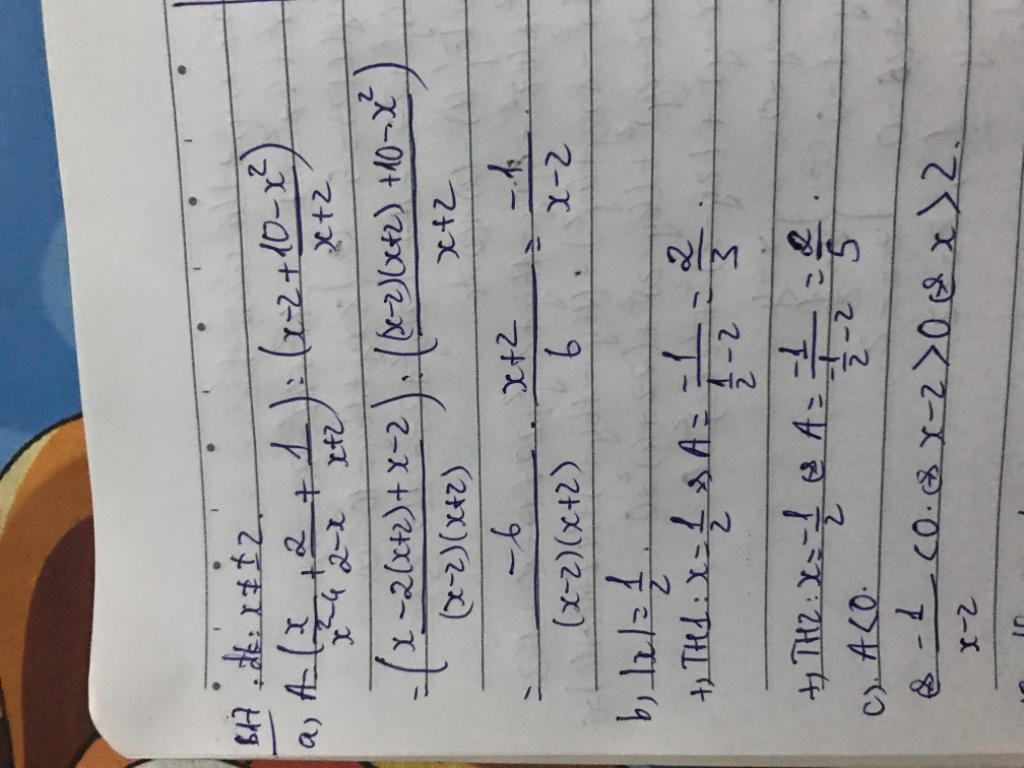 BA7 . đk: x ≠ ± 2
a) A = (x/(x²-4) + 2/(2-x) + 1/(x+2)) : (x-2 + (10-x²)/(x+2))
= ((x-2(x+2)+x-2)/((x-2)(x+2))) : (((x-2)(x+2)+10-x²)/(x+2))
= -6/((x-2)(x+2)) . (x+2)/6 = -1/(x-2)
b) |x| = 1/2.
+) TH1: x = 1/2 ⇔ A = -1/(1/2-2) = 2/3.
+) TH2: x = -1/2 ⇔ A = -1/(-1/2-2) = 2/5.
c). A < 0.
⇔ -1/(x-2) < 0. ⇔ x-2 > 0 ⇔ x > 2.